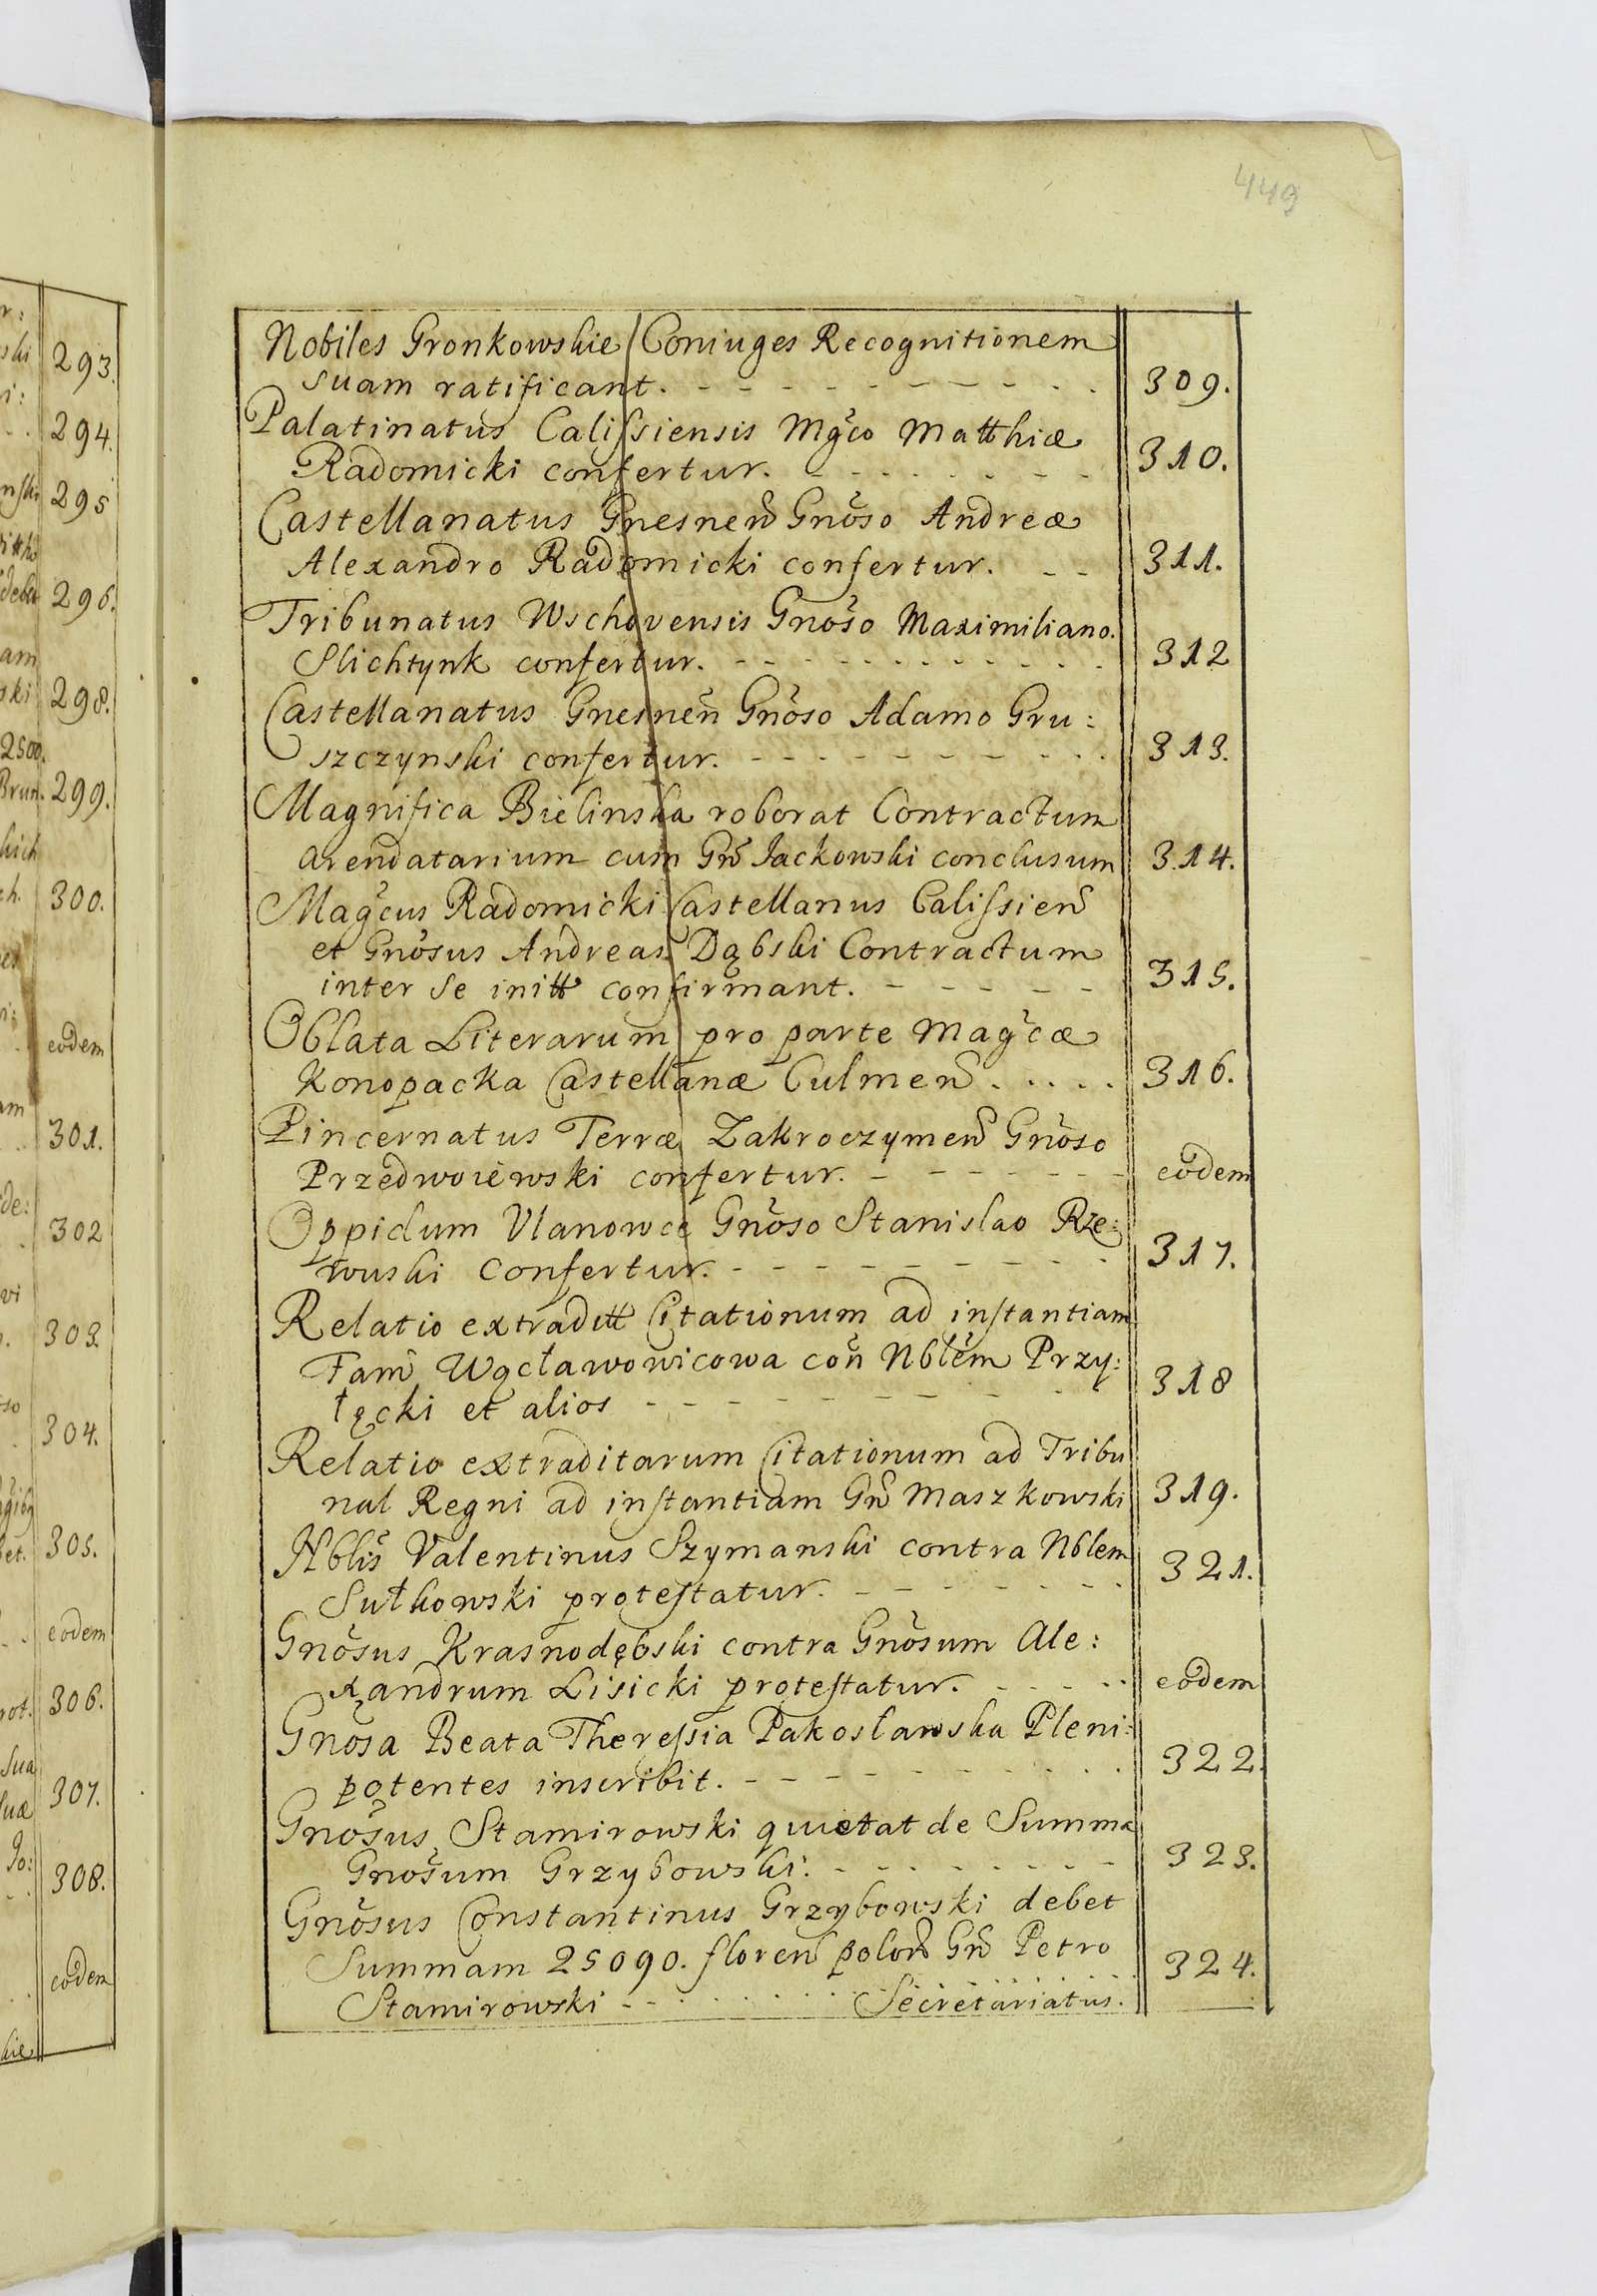 449
Nobiles Gronkowskie Coniuges Recognitionem
suam ratificant. 309.
Palatinatus Calissiensis Mgco Matthiæ
Radomicki confertur. 310.
Castellanatus Gnesnen Gnoso Andreæ
Alexandro Radomicki confertur. 311.
Tribunatus Wschovensis Gnoso Maximiliano.
Slichtynk confertur. 312
Castellanatus Gnesnen Gnoso Adamo Gru:
szczynski confertur. 313.
Magnifica Bielinska roborat Contractum
arendatarium cum Gn Jackowski conclusum 314.
Magcus Radomicki Castellanus Calissien
et Gnosus Andreas Dąbski Contractum
inter se initt confirmant. 315.
Oblata Literarum pro parte Magcæ
Konopacka Castellanæ Culmen 316.
Pincernatus Terræ Zakroczymen Gnoso
Przedwoiewski confertur. eodem
Oppidum Vlanowce Gnoso Stanislao Rze:
wuski confertur. 317.
Relatio extraditt Citationum ad instantiam
Fam Wącławowicowa con Nblem Przy:
łęcki et alios 318
Relatio extraditarum Citationum ad Tribu
nal Regni ad instantiam Gn Maszkowski 319.
Nblis Valentinus Szymanski contra Nblem
Sułkowski protestatur. 321.
Gnosus Krasnodębski contra Gnosum Ale:
xandrum Lisicki protestatur. eodem
Gnosa Beata Theressia Pakosławska Pleni:
potentes inscribit. 322.
Gnosus Stamirowski quietat de Summa
Gnosum Grzybowski. 323.
Gnosus Constantinus Grzybowski debet
Summam 25090. floren polon Gn Petro
Stamirowski 324.
Secretariatus.
293.
294.
295
296.
298.
2500.
299.
300.
eodem
301.
302
303.
304.
305.
eodem
306.
307.
308.
eodem